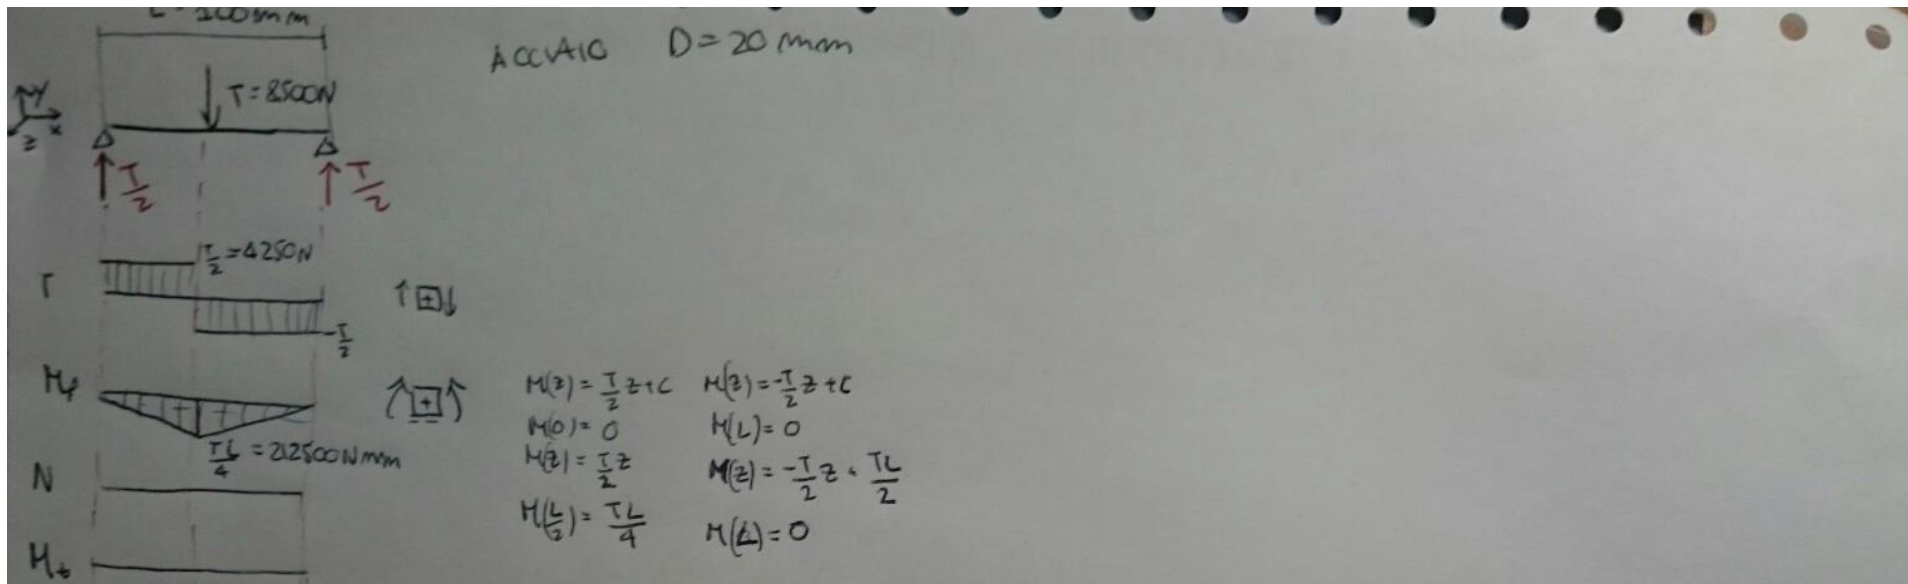 L = 100 mm
ACCIAIO D = 20 mm
T = 8500N
y
x
z
T/2
T/2
T
T/2 = 4250N
-T/2
+
Mf
+ +
TL/4 = 212500Nmm
+
M(z) = T/2 z + C
M(0) = 0
M(z) = T/2 z
M(L/2) = TL/4
M(z) = -T/2 z + C
M(L) = 0
M(z) = -T/2 z + TL/2
M(L) = 0
N
Mt